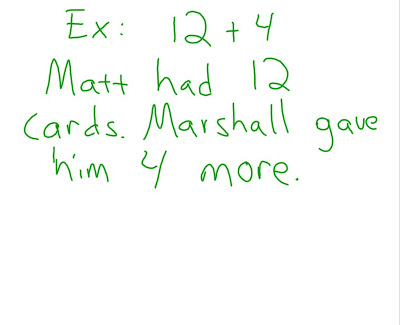 Ex: 12 + 4
Matt had 12
cards. Marshall gave
him 4 more.